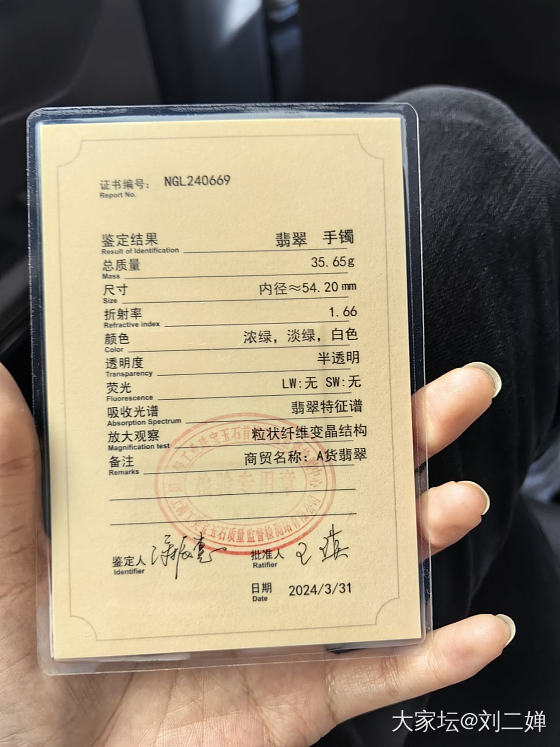 证书编号: NGL240669
Report No.
鉴定结果 翡翠 手镯
Result of Identification
总质量 35.65g
Mass
尺寸 内径≈54.20mm
Size
折射率 1.66
Refractive index
颜色 浓绿，淡绿，白色
Color
透明度 半透明
Transparency
荧光 LW:无 SW:无
Fluorescence
吸收光谱 翡翠特征谱
Absorption Spectrum
放大观察 粒状纤维变晶结构
Magnification test
备注 商贸名称: A货翡翠
Remarks
鉴定人 批准人
Identifier Ratifier
日期 2024/3/31
Date
大家坛@刘二婵